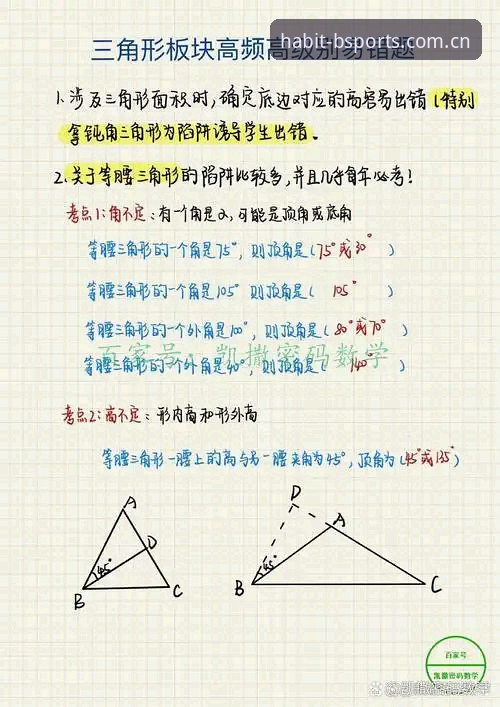 habit-bsports.com.cn
三角形板块高频高级别易错题
1.涉及三角形面积时,确定底边对应的高容易出错(特别
拿钝角三角形为陷阱诱导学生出错。
2.关于等腰三角形的陷阱比较多,并且几乎每年必考!
考点1:角不定:有一个角是α,可能是顶角或底角
等腰三角形的一个角是75°,则顶角是(75°或30°)
等腰三角形的一个角是105°则顶角是(105°)
等腰三角形的一个外角是100°,则顶角是(80°或70°)
百家号:凯撒密码数学
等腰三角形的一个外角是40°,则顶角是(140°)
考点2:高不定:形内高和形外高
等腰三角形一腰上的高与另一腰夹角为45°,顶角为(45°或135°)
A
D
45°
B
C
D
A
45°
B
C
百家号
凯撒密码数学
凯撒密码数学